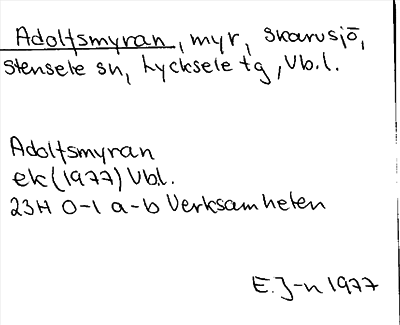 Adolfsmyran, myr, Skarvsjö,
Stensele sn, Lycksele tg, Vb.l.
Adolfsmyran
ek (1977) Vbl.
23H 0-1 a-b Verksamheten
E. J-n 1977